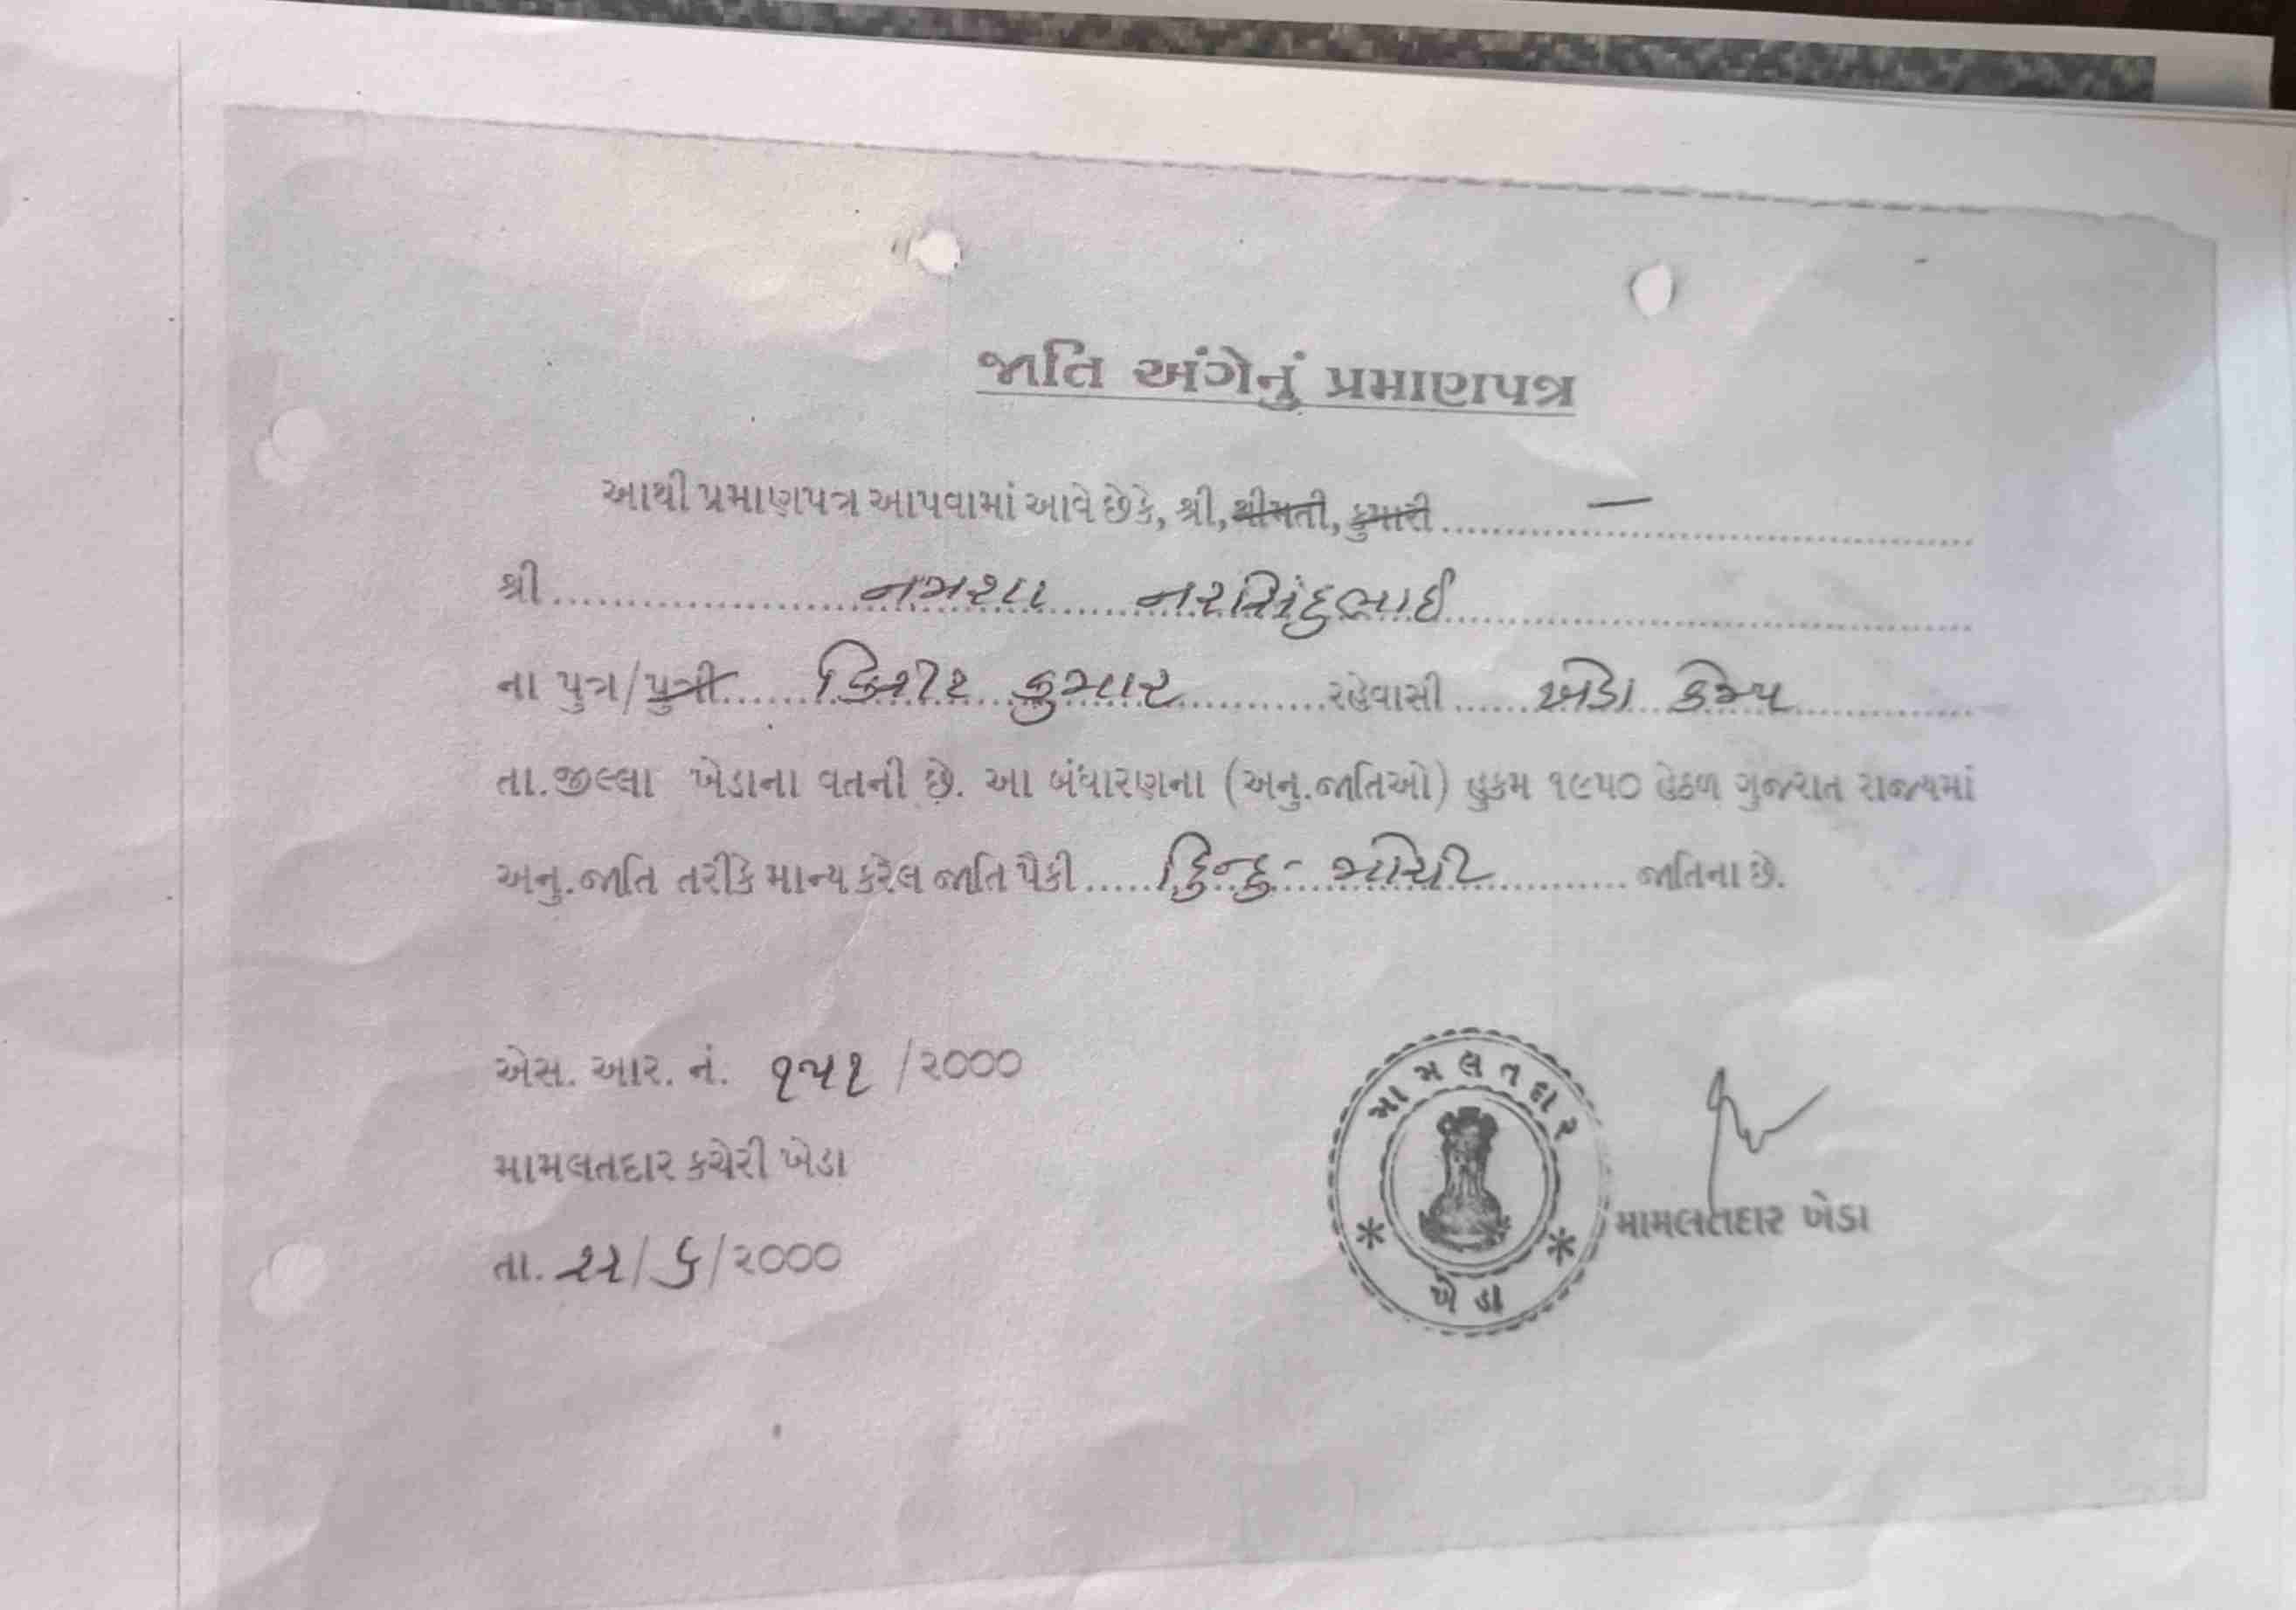 જાતિ અંગેનું પ્રમાણપત્ર
આથી પ્રમાણપત્ર આપવામાં આવે છેકે, શ્રી, શ્રીમતી, કુમારી ........ —
શ્રી ........ નરસિંહભાઈ ........
ના પુત્ર/પુત્રી ........ કિશોર કુમાર ........ રહેવાસી ........ ખેડા કેમ્પ ........
તા.જીલ્લા ખેડાના વતની છે. આ બંધારણના (અનુ.જાતિઓ) હુકમ ૧૯૫૦ હેઠળ ગુજરાત રાજ્યમાં
અનુ.જાતિ તરીકે માન્ય કરેલ જાતિ પૈકી ........ હિન્દુ - મોચી ........ જાતિના છે.
એસ. આર. નં. ૧૫૧ /૨૦૦૦
મામલતદાર કચેરી ખેડા
તા. ૨૨/૬/૨૦૦૦
મામલતદાર
ખેડા
મામલતદાર ખેડા